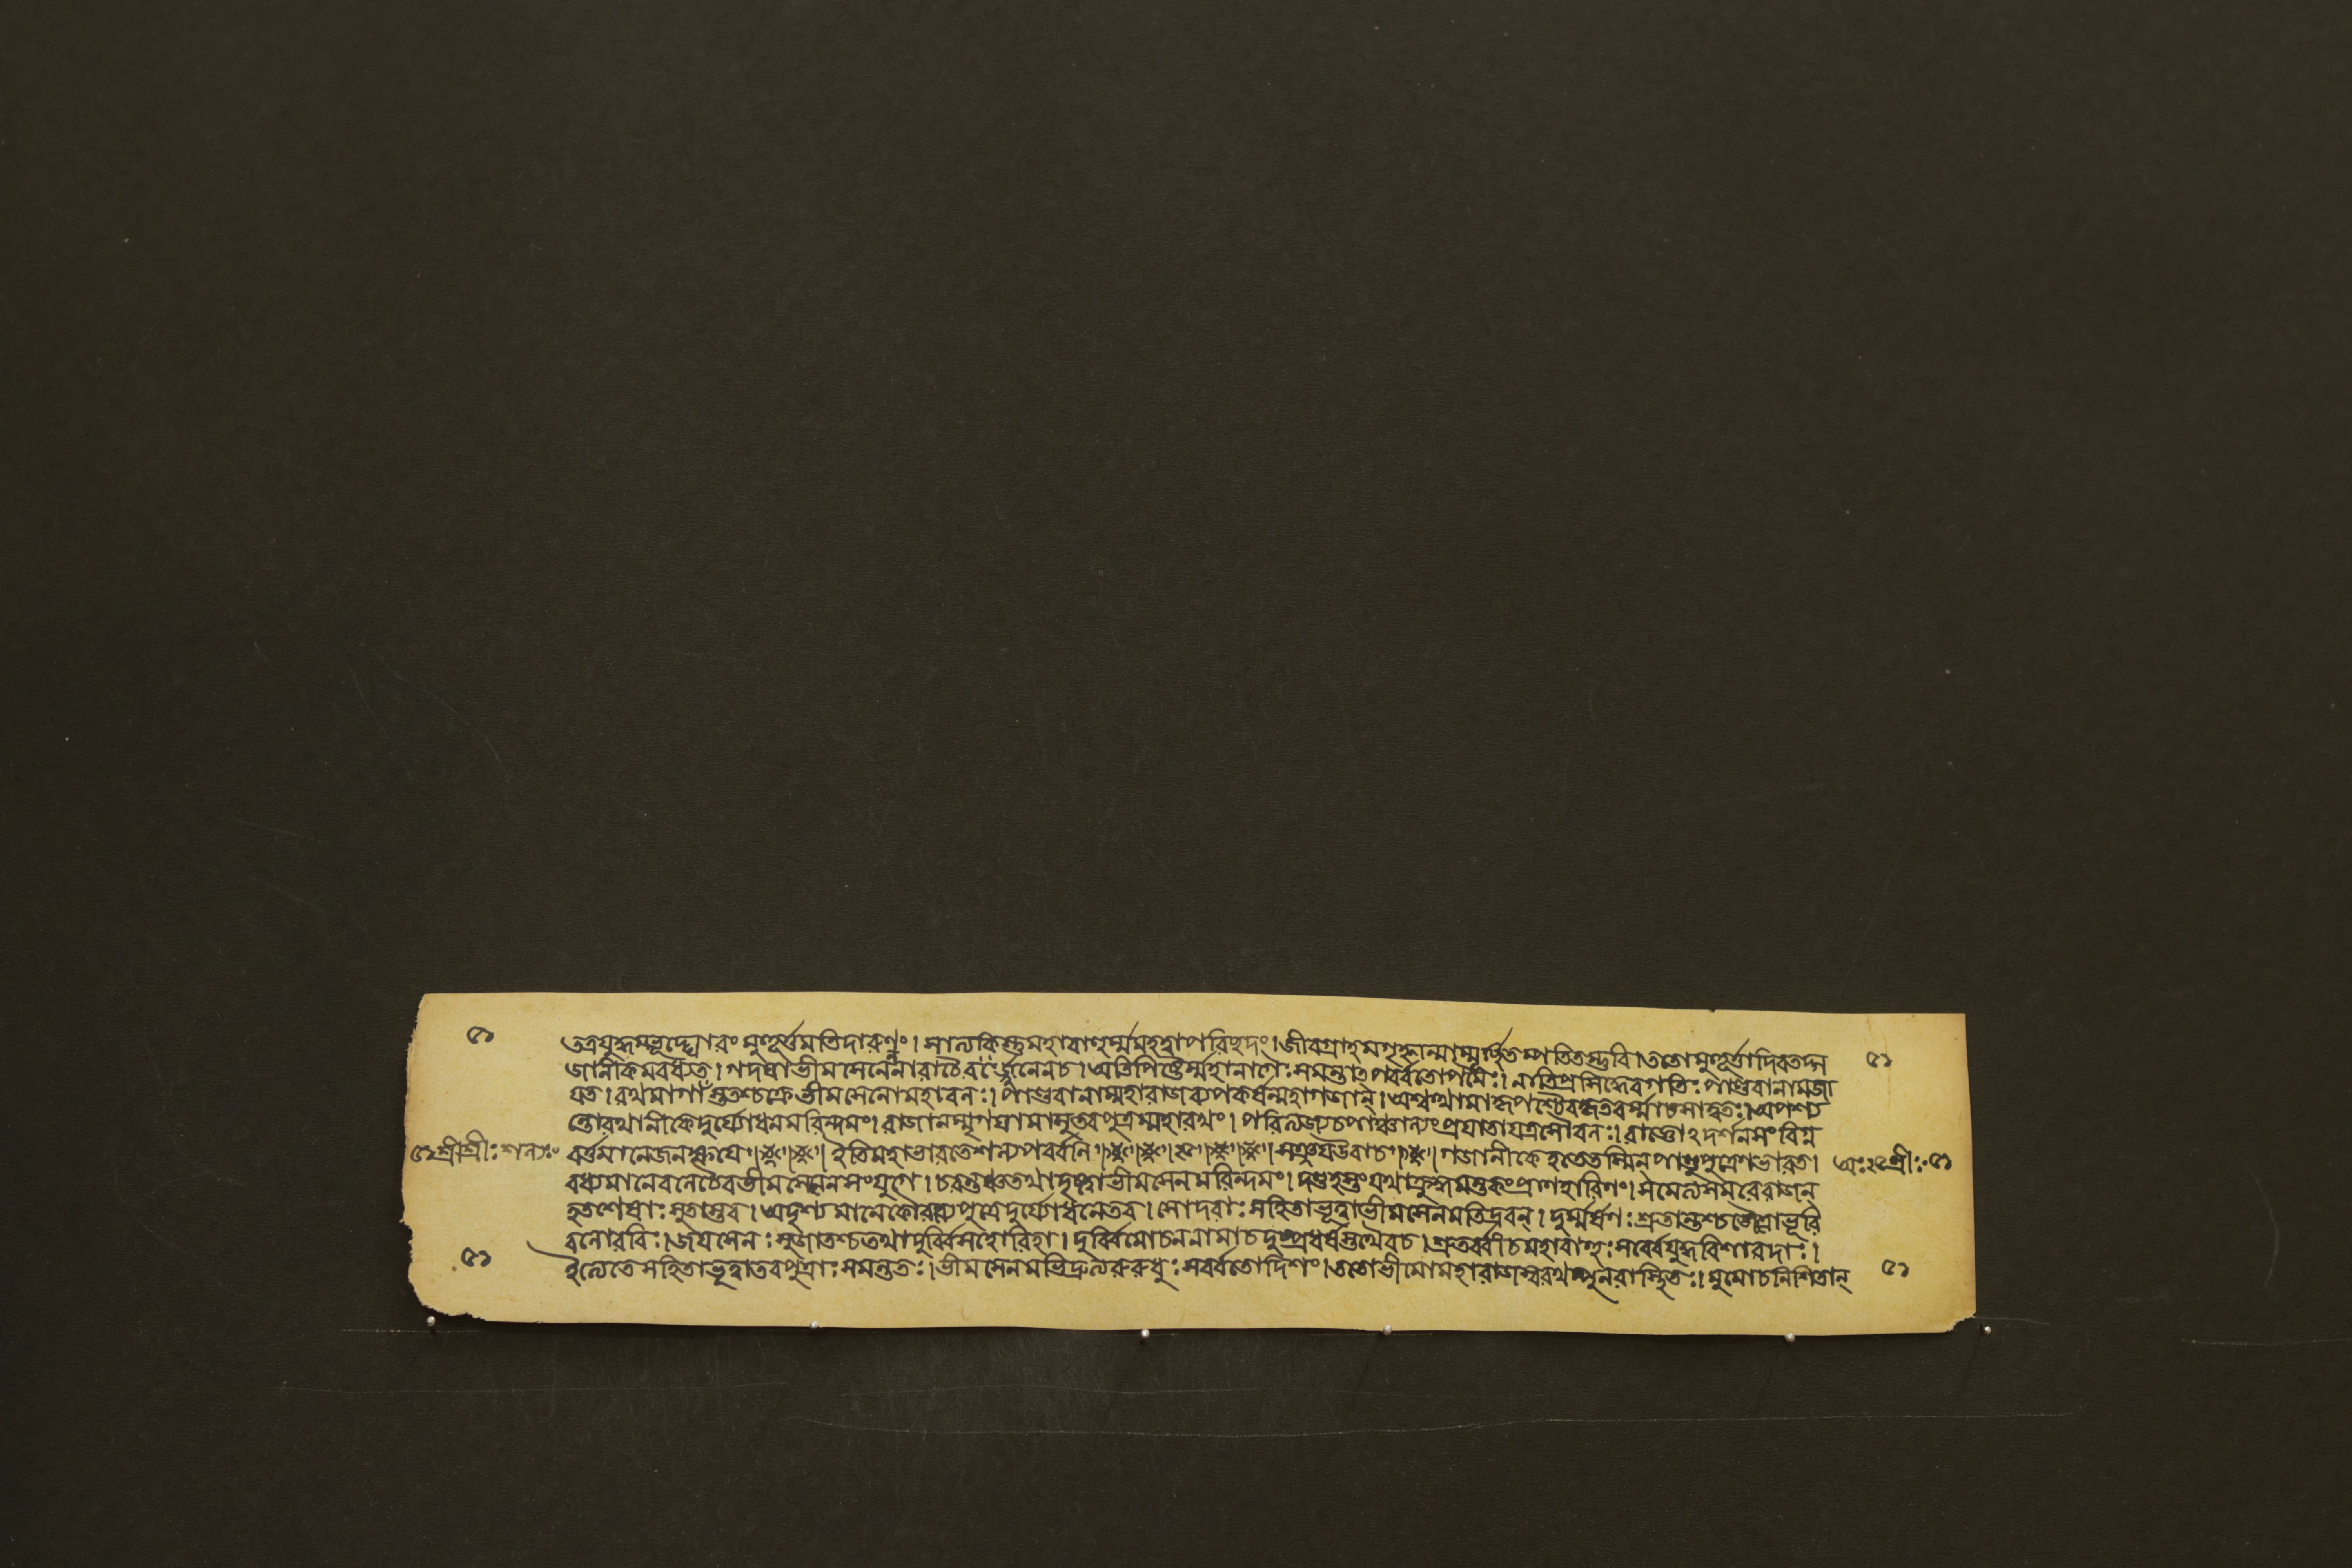 ৫১ তত্রযুদ্ধমভূদ্ঘোরং মুহূর্ত্তমতিদারুণং। সাত্যকিস্তুমহাবাহুর্ম্মমহত্বাপরিছদং।জীবগ্রাহমগৃহ্নান্মাম্মূর্চ্ছিতম্পতিতম্ভুবি।ততোমুহূর্ত্তাদিবতদ্গ ৫১
জানীকমবধ্যত।গদযাভীমসেনেননারাচৈরর্জ্জুনেনচ।অতিপিষ্টৈর্ম্মহানাগৈঃসমন্তাৎপর্ব্বতোপমৈঃ।নাতিপ্রসিদ্ধেবগতিঃপাণ্ডবানামজা
যত।রথমার্গাঁস্ততশ্চক্রেভীমসেনোমহাবলঃ।পাণ্ডবানাম্মহারাজব্যপকর্ষন্মহাগজান্।অশ্বত্থামাকৃপশ্চৈবকৃতবর্ম্মাচসাত্বতঃ।অপশ্য
ন্তোরথানীকেদুর্য্যোধনমরিন্দমং।রাজানম্মৃগযামাসুস্তবপুত্রম্মহারথং।পরিত্যজ্যচপাঞ্চাল্যংপ্রযাতাযত্রসৌবলঃ।রাজ্ঞোঽদর্শনসংবিগ্ন
৫১শ্রীশ্রীঃশল্যঃ বর্ত্তমানেজনক্ষযে।ইতিমহাভারতেশল্যপর্ব্বনি।সঞ্জযউবাচ।গজানীকেহতেতস্মিন্পাণ্ডুপুত্রেণভারত। অঃ২৫শ্রীঃ৫১
বধ্যমানেবলেচৈবভীমসেনেনসংযুগে।চরন্তঞ্চতথাদৃষ্ট্বাভীমসেনমরিন্দমং।দণ্ডহস্তংযথাক্রুদ্ধমন্তকংপ্রাণহারিণং।সমেত্যসমরেরাজন্
হতশেষাঃসুতাস্তব।অদৃশ্যমানেকৌরব্যেপুত্রেদুর্য্যোধনেতব।সোদরাঃসহিতাভূত্বাভীমসেনমতিদ্রবন্।দুর্ম্মর্ষণঃশ্রুতান্তশ্চজৈত্রোভূরি
বলোরবিঃ।জযসেনঃসুজাতশ্চতথাদুর্ব্বিসহোরিহা।দুর্ব্বিমোচননামাচদুষ্প্রধর্ষস্তথৈবচ।শ্রুতর্ব্বাচমহাবাহুঃসর্ব্বেযুদ্ধবিশারদাঃ।
৫১ ইত্যেতেসহিতাভূত্বাতবপুত্রাঃসমন্ততঃ।ভীমসেনমভিদ্রুত্যরুরুধুঃসর্ব্বতোদিশং।ততোভীমোমহারাজস্বরথম্পুনরাস্থিতঃ।মুমোচনিশিতান্ ৫১